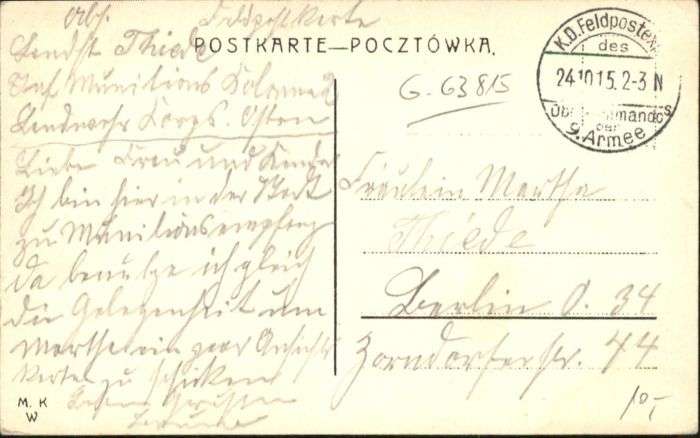 Abs. Feldpostkarte
Landst. Thiede
Inf. Munitions Kolonne 2
Landwehr Korps. Osten
Liebe Frau und Kinder
Ich bin hier in der Stadt
zu Munitionsempfang
da benutze ich gleich
die Gelegenheit um
Martha ein paar Ansichts
Karten zu schicken
Grüßen
M. K
W
POSTKARTE—POCZTÓWKA.
G. G3815
K.D. Feldpostexp.
des
24.10.15. 2-3 N
Oberkommandos
der
9. Armee
Fräulein Martha
Thiede
Berlin O. 34
Zorndorferstr. 44
10,-